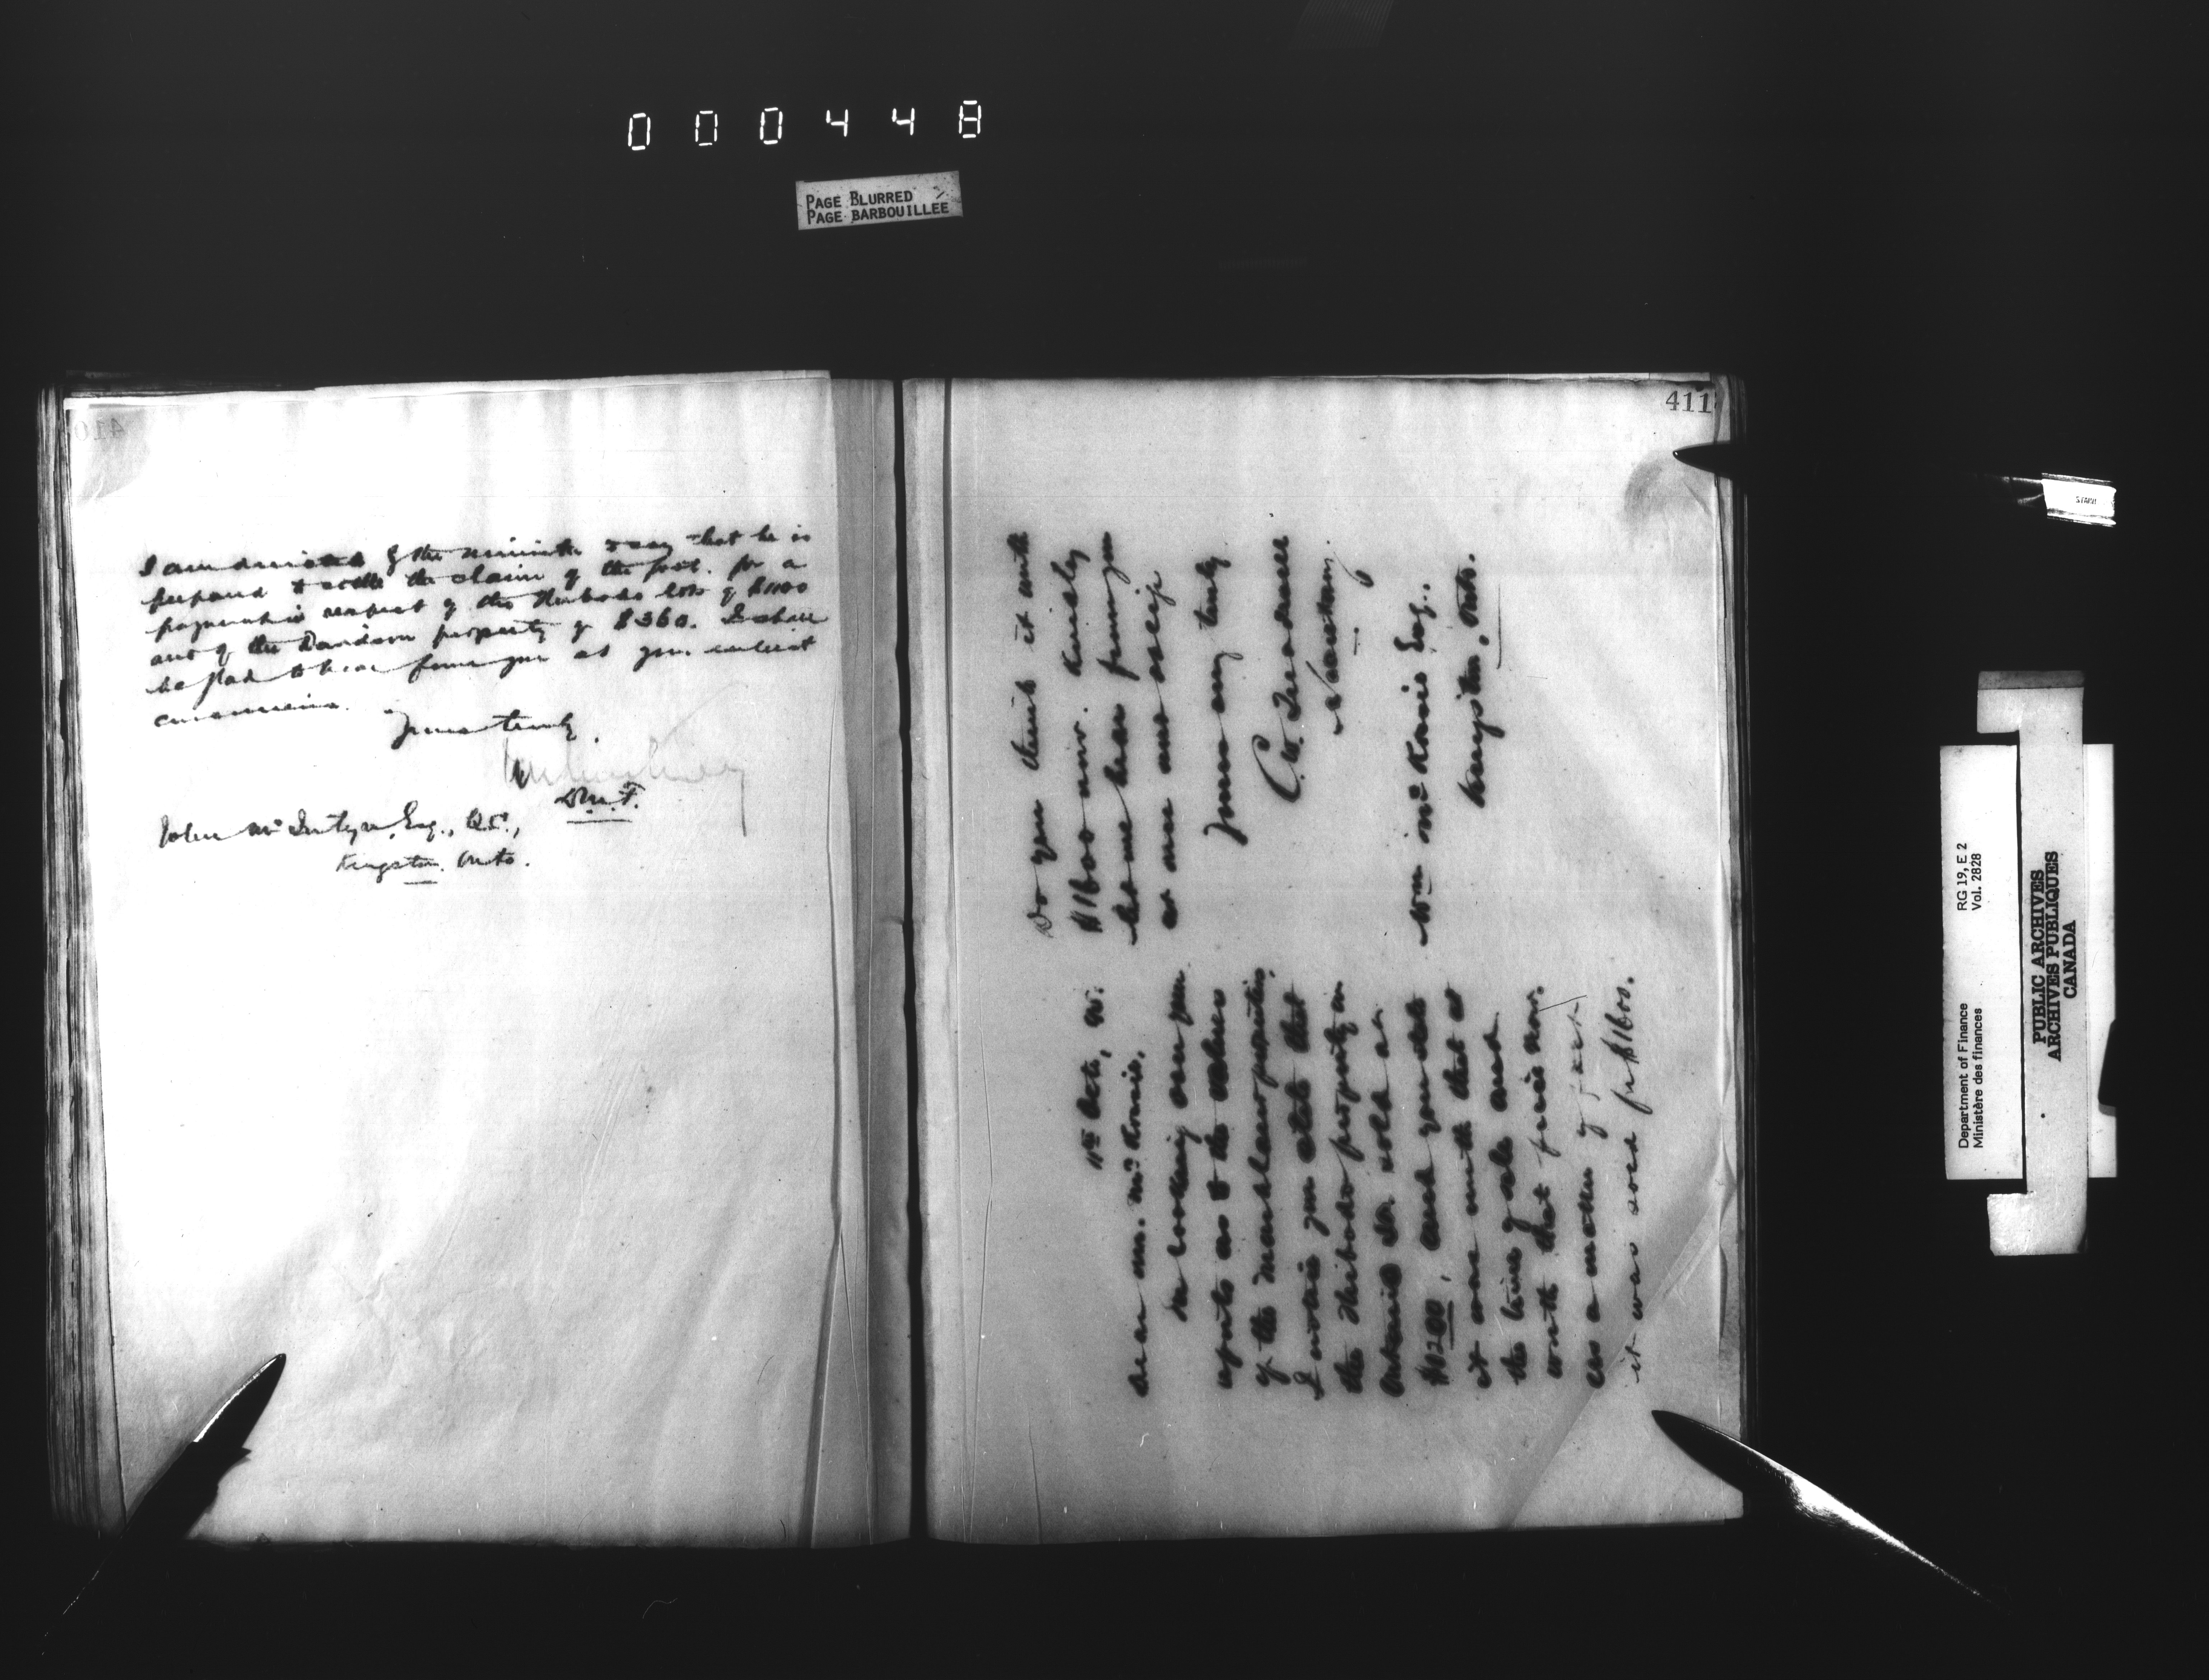 000448
PAGE BLURRED
PAGE BARBOUILLEE
410
I am directed by the minister to say that he is
prepared to settle the claim of the Govt. for a
payment in respect of the lots of $1100
and of the Davidson property of $360. I shall
be glad to hear from you at your earliest
convenience.
Yours truly,
D.M.F.
John McIntyre, Esq., Q.C.,
Kingston, Onto.
411
11th Octo,
Dear Mr.
In looking over your
reports as to the values
of the properties,
I notice you state that
the property in
Ontario St. sold at
$10200, and you state
it was worth that at
the time of sale and
worth that price now.
As a matter of fact
it was sold for $1600.
Do you think it worth
$1600 now. Kindly
let me hear from you
at once and oblige
Yours very truly
C.W. Treadwell
Secretary.
Wm Esq.,
Kingston, Onto.
START
Department of Finance
Ministère des finances
RG 19, E 2
Vol. 2828
PUBLIC ARCHIVES
ARCHIVES PUBLIQUES
CANADA